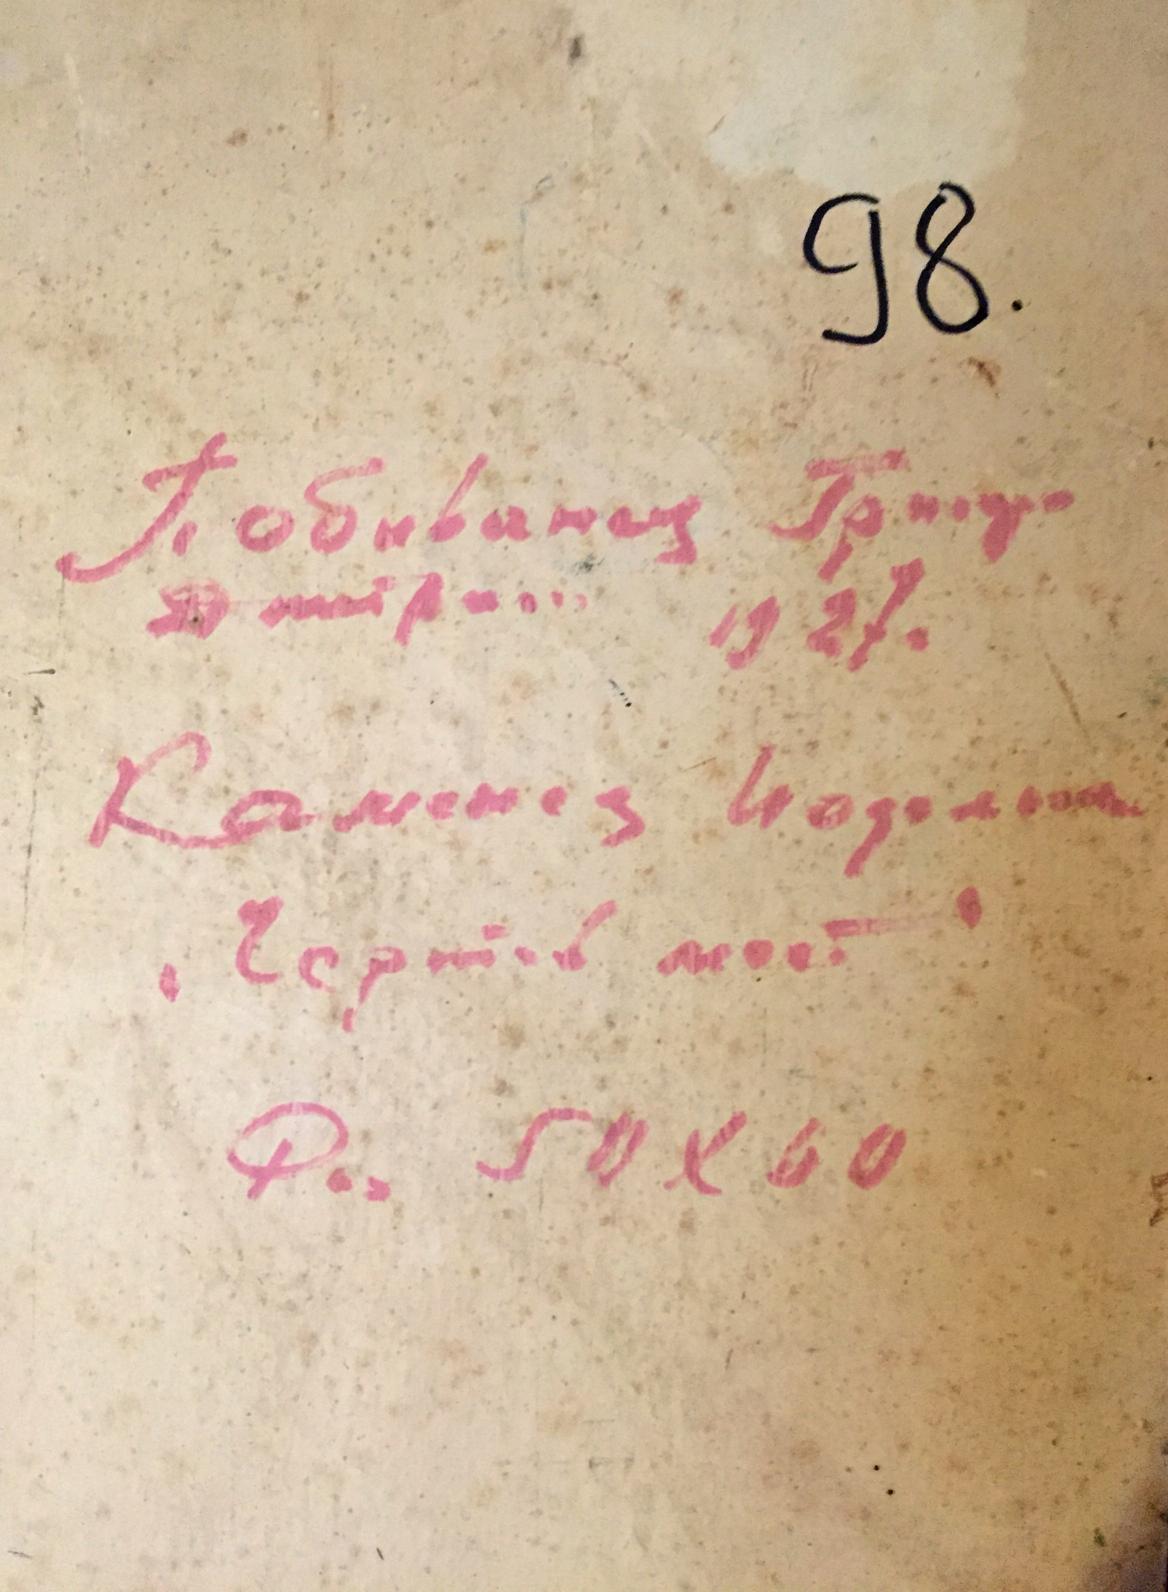 98.
Побиванец Григо
Дмитри... 1927.
Каменец Подольск
"Чертів мост"
Ф.. 50 X 60